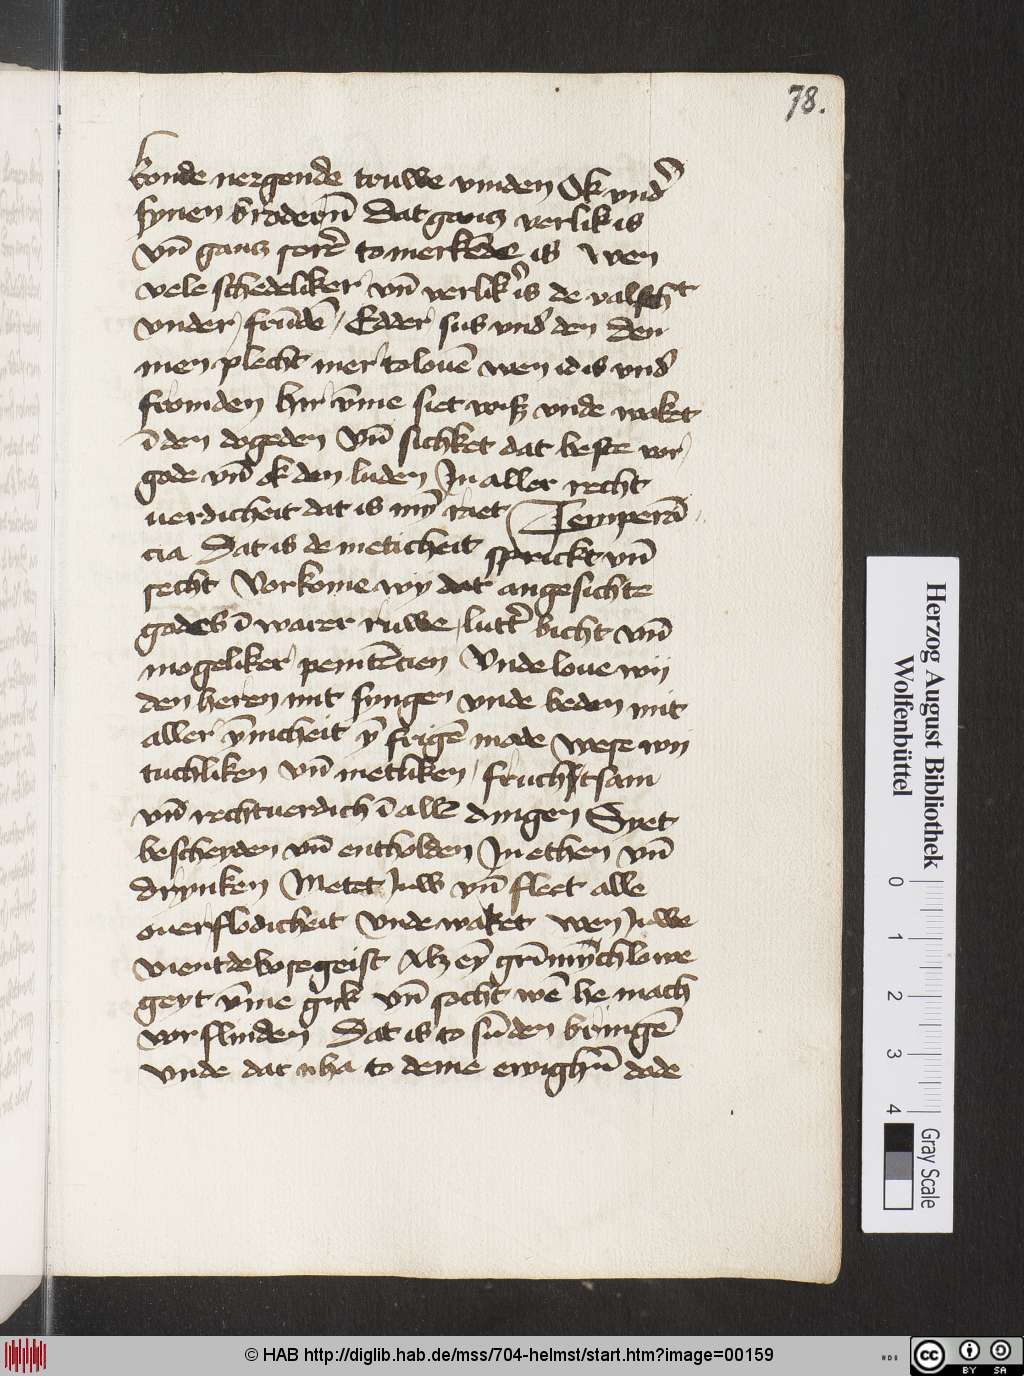 78.
konde nergende truwe vinden Ok vnd'
synen broderē Dat gantz verlik is
vn̄ gantz sorē to merkēde is wen
vele schedeliker vn̄ verlik' is de valscht
vnder frūdē Edder sus vnd' den den
men plecht mer to louē wen id is vnd'
fromden hir v̄me siet wisz vnde waket
ī den dogeden Vn̄ sichket dat beste vor
gode vn̄ ok den luden In aller recht
uerdicheit dat is my̅ raet Temperā
cia Dat is de meticheit sprickt vn̄
secht Vorkome wy dat angesichte
godes ī warer ruwe lutt' bicht vn̄
mogeliker penitēcien Vnde loue wij
den heren mit syngen vnde beden mit
aller ȳnicheit ȳ frigē mode wese wij
tuchliken vn̄ metliken fruchtsam
vn̄ rechtuerdich ī all' dingen Syet
bescheyden vn̄ entholden In ethen vn̄
drynken Metet Juw vn̄ fleet alle
ouerflodicheit Vnde waket wen Juwe
vient de bose geist Alz eȳ grīmich lowe
geyt v̄me guk vn̄ socht wē he mach
vorslinden Dat is to sūden bringē
vnde dat nha to deme ewighē dode
Herzog August Bibliothek
Wolfenbüttel
0 1 2 3 4
Gray Scale
© HAB http://diglib.hab.de/mss/704-helmst/start.htm?image=00159
HAB
cc BY SA